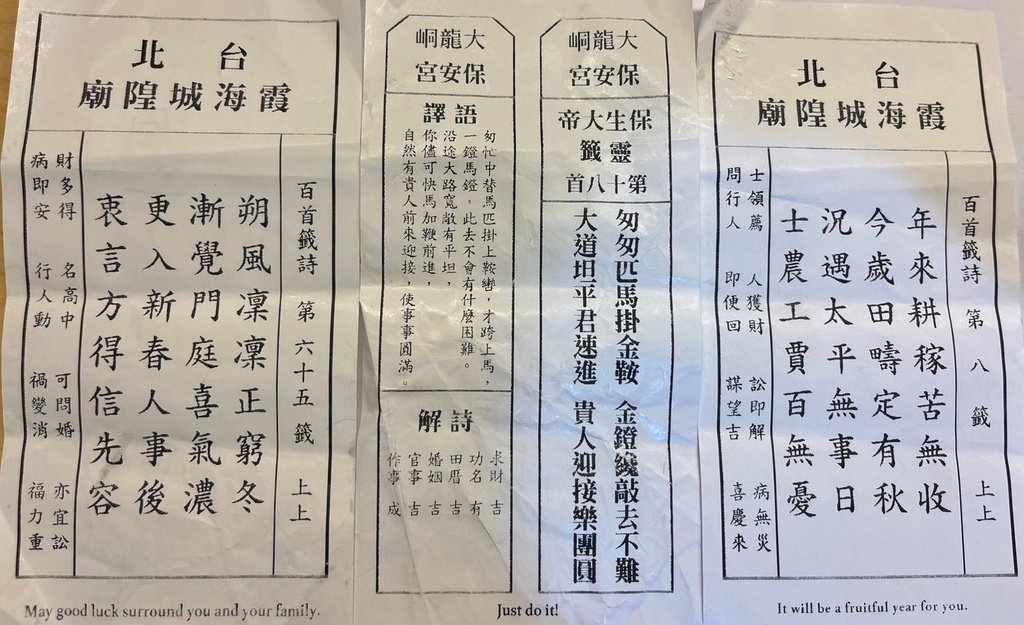 台北
霞海城隍廟
百首籤詩 第六十五籤 上上
朔風凜凜正窮冬
漸覺門庭喜氣濃
更入新春人事後
衷言方得信先容
財多得 名高中 可問婚 亦宜訟
病即安 行人動 禍變消 福力重
May good luck surround you and your family.
大龍峒
保安宮
保生大帝
靈籤
第十八首
匆匆匹馬掛金鞍 金鐙纔敲去不難
大道坦平君速進 貴人迎接樂團圓
大龍峒
保安宮
語譯
匆忙中替馬匹掛上鞍轡，才跨上馬，
一鐙馬鐙，此去不會有什麼困難。
沿途大路寬敞有平坦，
你儘可快馬加鞭前進，
自然有貴人前來迎接，使事事圓滿。
詩解
求財 吉
功名 有
田厝 吉
婚姻 吉
官事 吉
作事 成
Just do it!
台北
霞海城隍廟
百首籤詩 第八籤 上上
年來耕稼苦無收
今歲田疇定有秋
況遇太平無事日
士農工賈百無憂
士領薦 人獲財 訟即解 病無災
問行人 即便回 謀望吉 喜慶來
It will be a fruitful year for you.